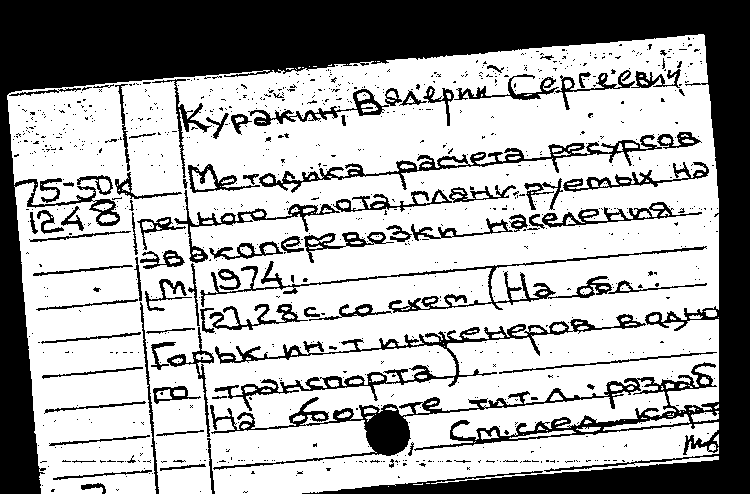 Куракин, Валерий Сергеевич
75-50к
1248
Методика расчета ресурсов
речного флота, планируемых на
эвакоперевозки населения.
[М., 1974].
[2], 28 с. со схем. (На обл.:
Горьк. ин-т инженеров водно
го транспорта).
На обороте тит. л.: разраб
См. след. карт